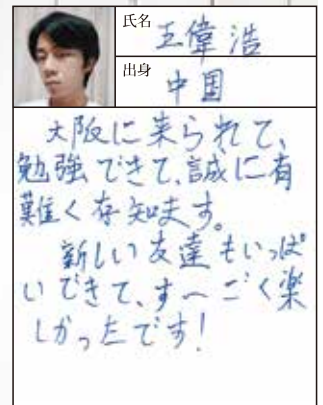 氏名 王偉浩
出身 中国
大阪に来られて、
勉強できて、誠に有
難く存知ます。
新しい友達もいっぱ
いできて、す〜ごく楽
しかったです!